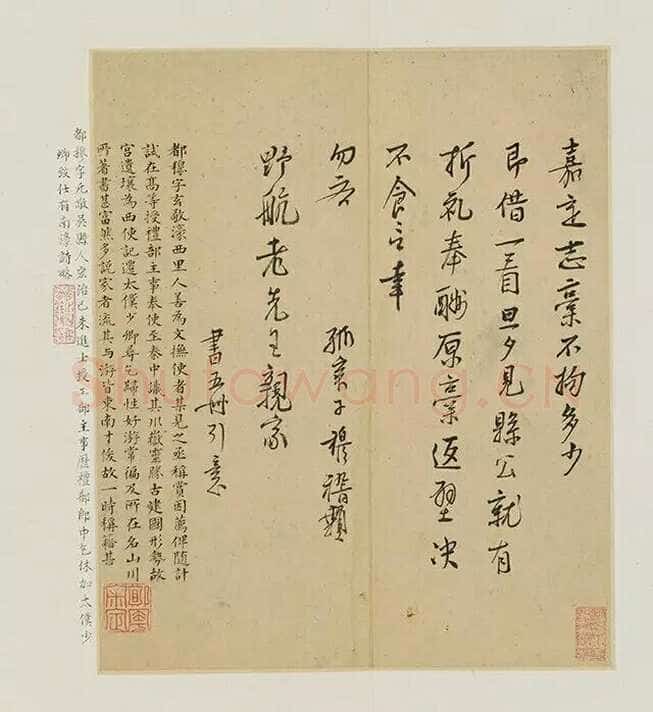 嘉定志稾不拘多少
即借一二目旦夕見縣公就有
折礼奉酬原稾返璧决
不食言幸
勿吝 孤哀子穆稽顙
野航老先生親家
書五冊引意
都穆字玄敬濠西里人善為文撫使者某見之亟稱賞因薦俾隨計
試在高等授禮部主事奉使至秦中讀其川嶽靈勝古建國形勢故
宮遺壤為西使記遷太僕少卿尋乞歸性好游常徧及所在名山川
所著書甚富然多說家者流其与游皆東南才俊故一時稱籍甚
都穆字元敬吳縣人宏治己未進士授工部主事歷禮部郎中乞休加太僕少
卿致仕有南濠詩略
Shufawang.cn